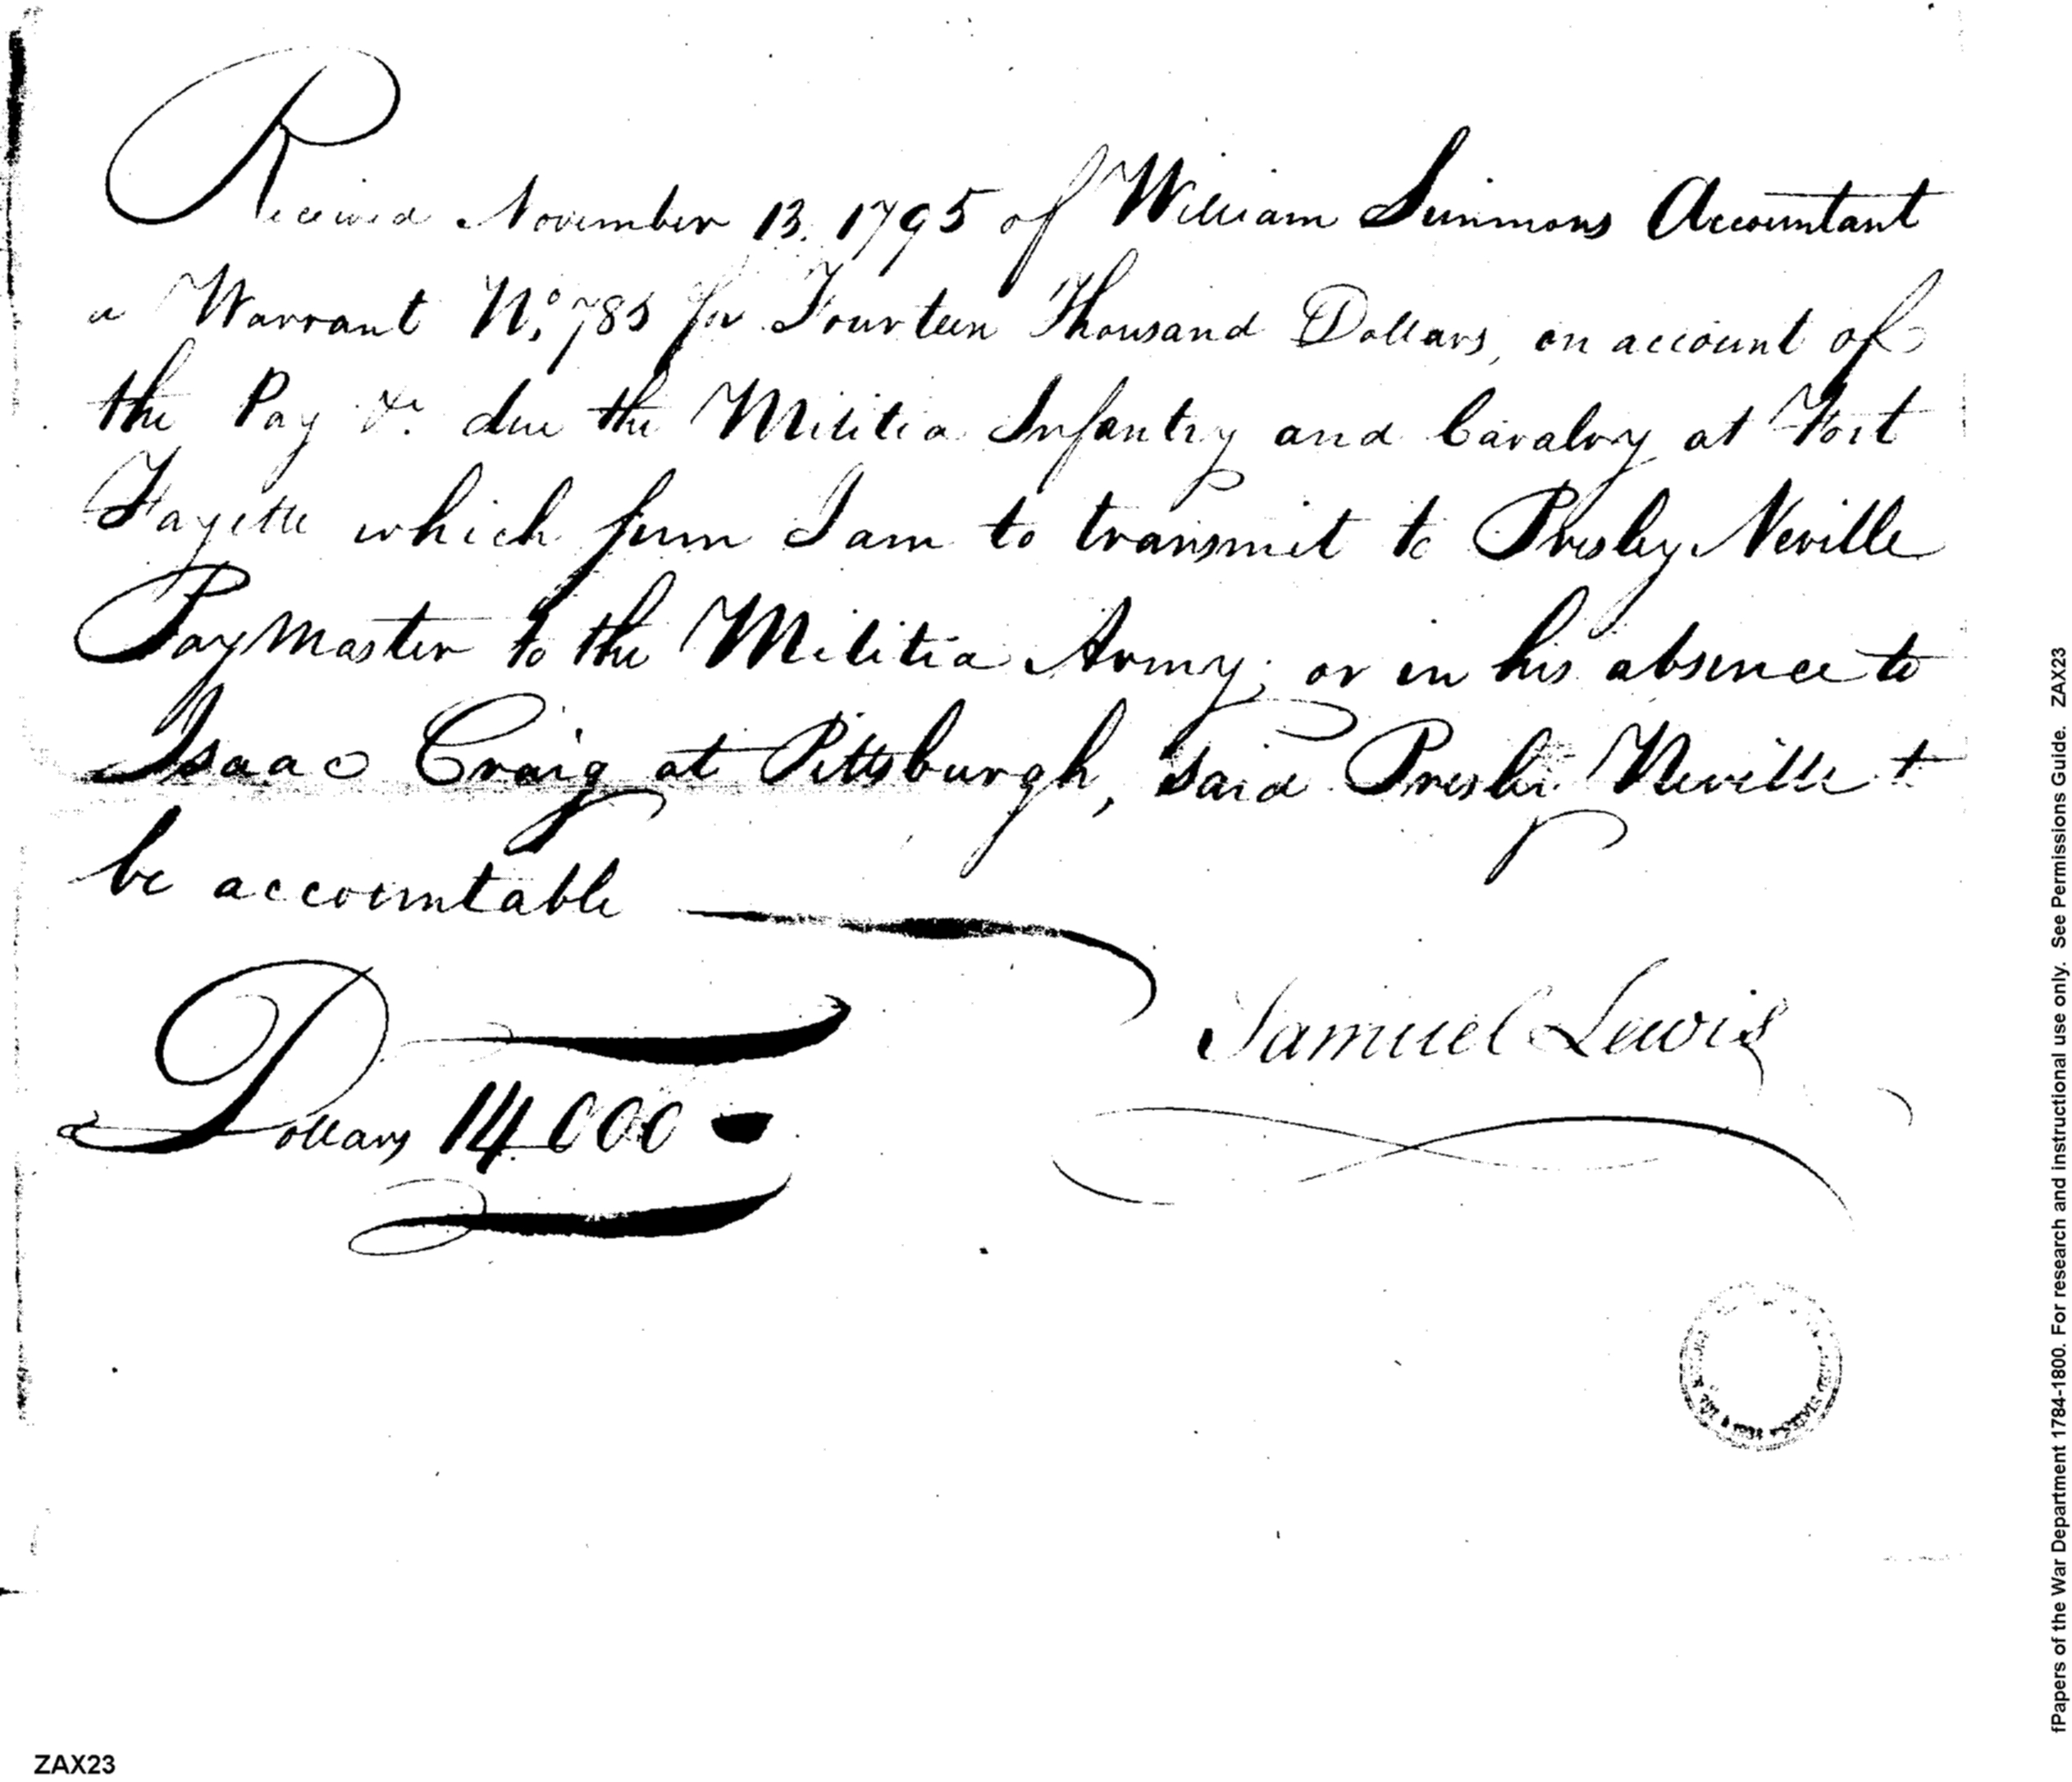 Received November 13. 1795 of William Simmons Accountant
a Warrant No. 785 for Fourteen Thousand Dollars, on account of
the Pay &c. due the Militia Infantry and Cavalry at Fort
Fayette which sum I am to transmit to Presley Neville
PayMaster to the Militia Army; or in his absence to
Isaac Craig at Pittsburgh, said Presley Neville t
be accountable
Samuel Lewis
Dollars 14.000
ZAX23
fPapers of the War Department 1784-1800. For research and instructional use only. See Permissions Guide. ZAX23